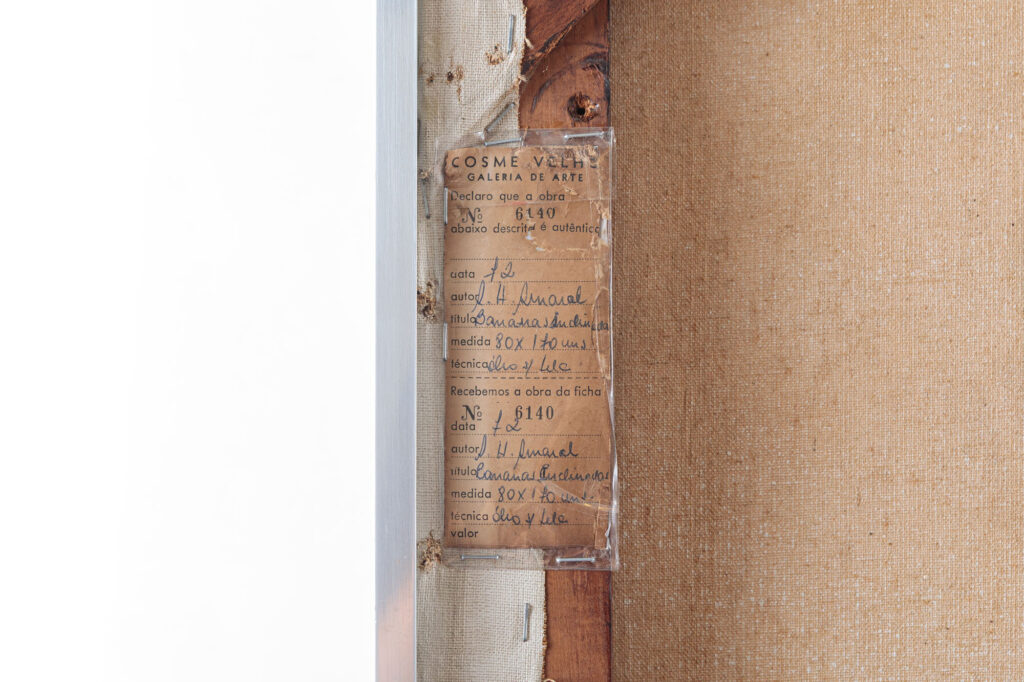 COSME VELHO
GALERIA DE ARTE
Declaro que a obra
Nº 6140
abaixo descrita é autêntica
data 72
autor A. H. Amaral
título Bananas Inclinadas
medida 80 X 170 cms
técnica óleo s/ tela
Recebemos a obra da ficha
Nº 6140
data 72
autor A. H. Amaral
título Bananas Inclinadas
medida 80 X 170 cms
técnica óleo s/ tela
valor